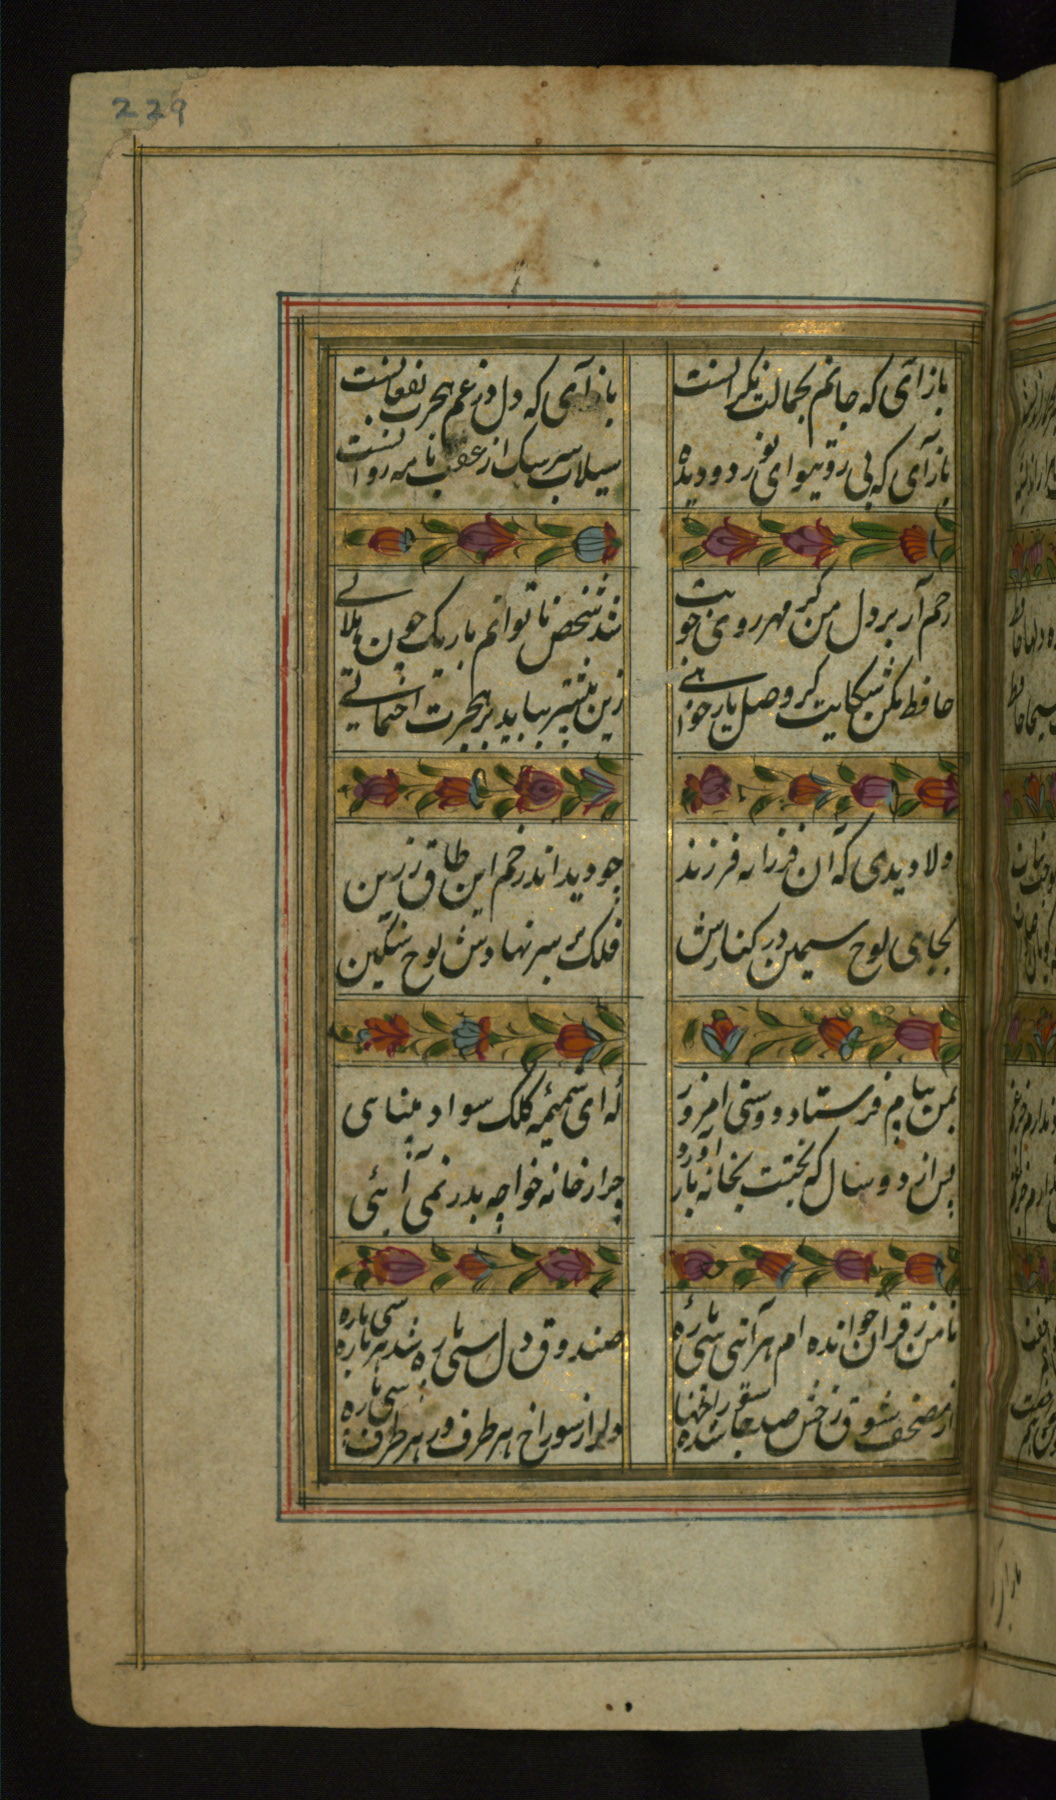 229
باز آی که جانم بجمالت نگرانست
باز آی که دل در غم هجرت بفغانست
باز آی که بی رویت ای نور دو دیده
سیلاب سرشک از عقب نامه روانست
رحم آر بر دل من کز مهر روی خوبت
شد شخص ناتوانم باریک چون هلالی
حافظ مکن شکایت گر وصل یار خواهی
زین بیشتر بباید بر هجرت احتمالی
دلا دیدی که آن فرزانه فرزند
چو دید اندر خم این طاق رنگین
بجای لوح سیمین در کنارش
فلک بر سر نهادش لوح سنگین
بمن پیام فرستاد دوستی امروز
که ای نتیجه کلک سواد بینایی
پس از دو سال که بختت بخانه باز آورد
چرا ز خانه خواجه بدر نمی آیی
تا من ز قرآن خوانده ام هر
صندوق دل سی پاره شد هر پاره سی پاره
از مصحف شوق رخش صد جا
دل از سوراخ هر طرف در هر طرف